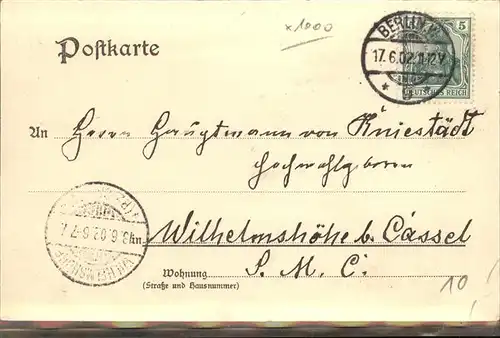 x1000
Postkarte
BERLIN W.
17.6.02.11-12V
*
5
DEUTSCHES REICH
An Herrn Hauptmann von Kniestädt
Hochwohlgeboren
Wilhelmshöhe b. Cassel
Wohnung S. M. C.
(Straße und Hausnummer)
10